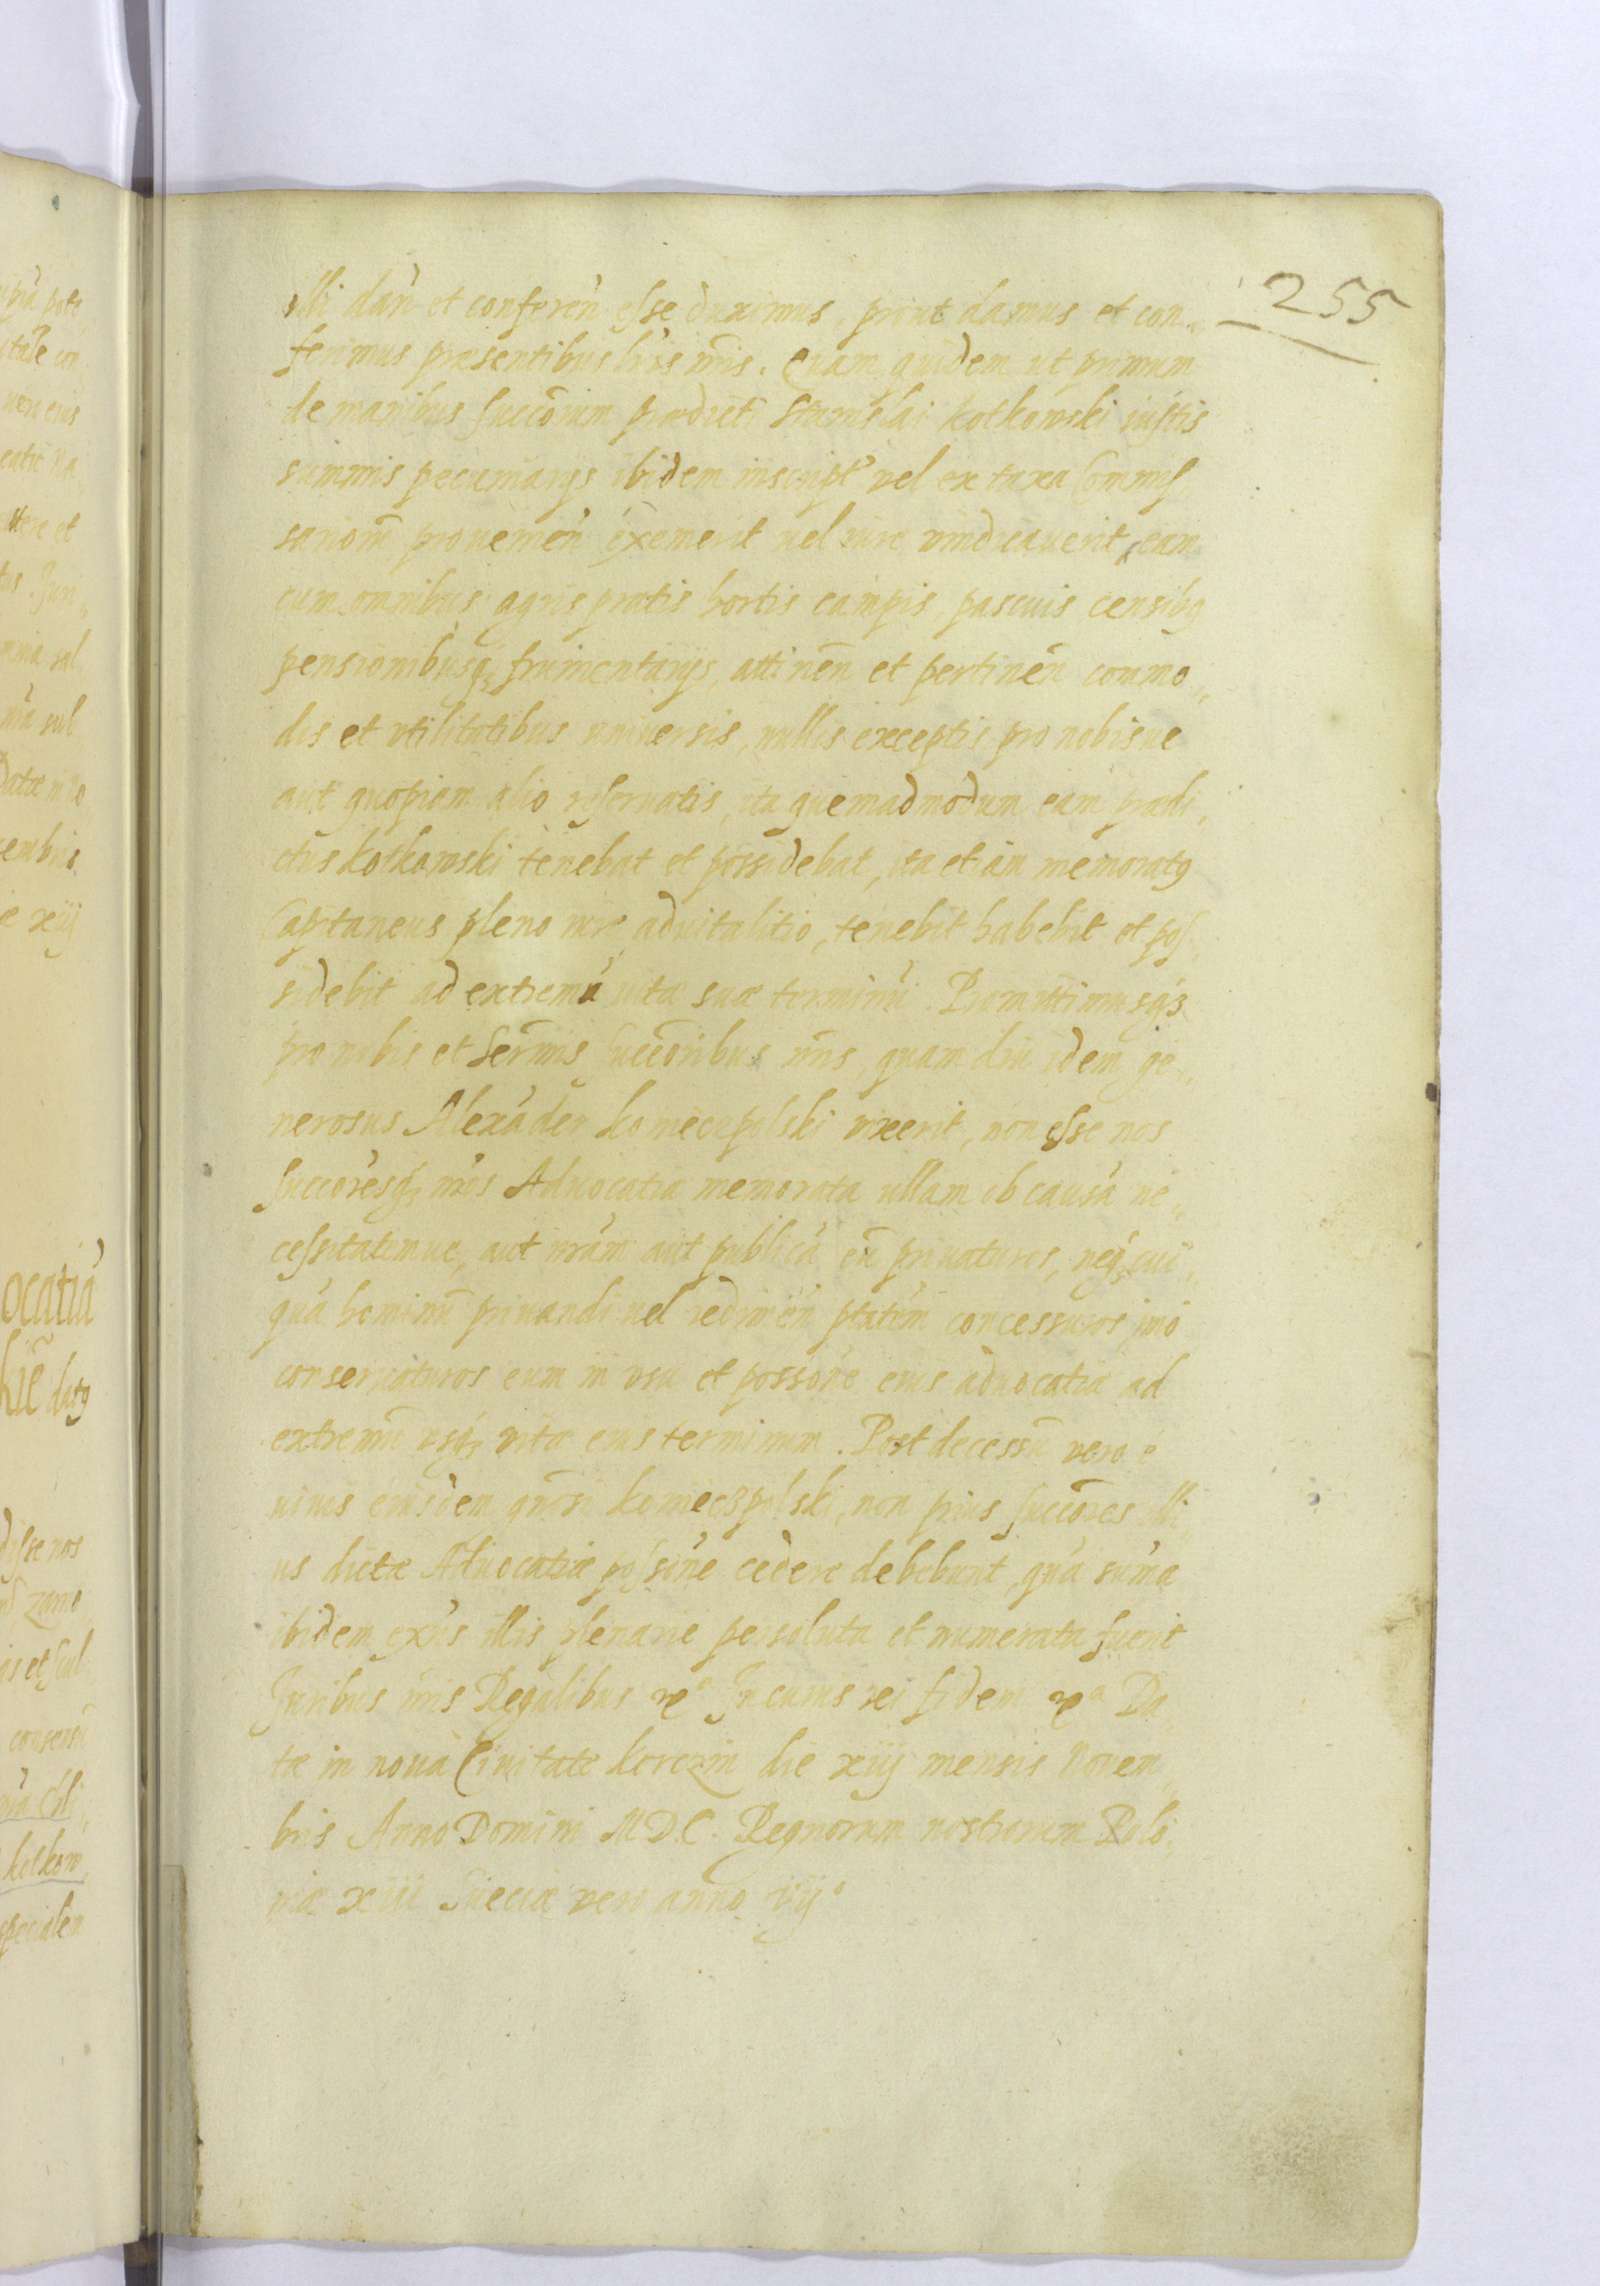 255
illi dan̄ et conferen̄ esse duximus, prout damus et con„
ferimus præsentibus lr̄is nr̄is. Quam quidem ut primum
de manibus succōrum prædict̄ Stanislai Kotkowski iustis
summis pecuniarijs ibidem inscript̄ vel ex taxa Commis„
sariorū prouenien̄ exemerit vel iure vindicauerit, eam
cum omnibus agris pratis hortis campis pascuis censibq
pensionibusq₃ frumentarijs, attinēn et pertinēn commo„
dis et vtilitatibus vniuersis, nullis exceptis pro nobisue
aut quopiam alio reseruatis, ita quemadmodum eam prædi„
ctus Kotkowski tenebat et possidebat, ita etiam memoratq
Capitaneus pleno iure aduitalitio, tenebit habebit et pos„
sidebit ad extremū vitæ suæ terminū. Promittimusq₃
pro nobis et Sermīs succōribus nr̄is, quam diu idem ge„
nerosus Alexāder Koniecpolski vixerit, non esse nos
succōresq₃ nr̄os Aduocatia memorata ullam ob causā ne„
cessitatemue, aut nr̄am aut publicā eū priuaturos, neq₃ cui„
quā hominū priuandi vel redimēn ptātem concessuros, imo
conseruaturos eum in vsu et possōne eius aduocatiæ ad
extremū vsq₃ vitæ eius terminum. Post decessū vero e
viuis eiusdem gnōsi Koniecpolski, non prius succōres illi„
us dictæ Aduocatiæ possōne cedere debebunt, quā sūma
ibidem ex͞ns illis plenarie persoluta et numerata fuerit
Iuribus nr̄is Regalibus etcª In cuius rei fidem etcª Da„
tæ in noua Ciuitate Korczin die xiij mensis Nouem„
bris Anno Domini M.D.C. Regnorum nostrorum Polo„
niæ xiii Sueciæ vero anno vijº